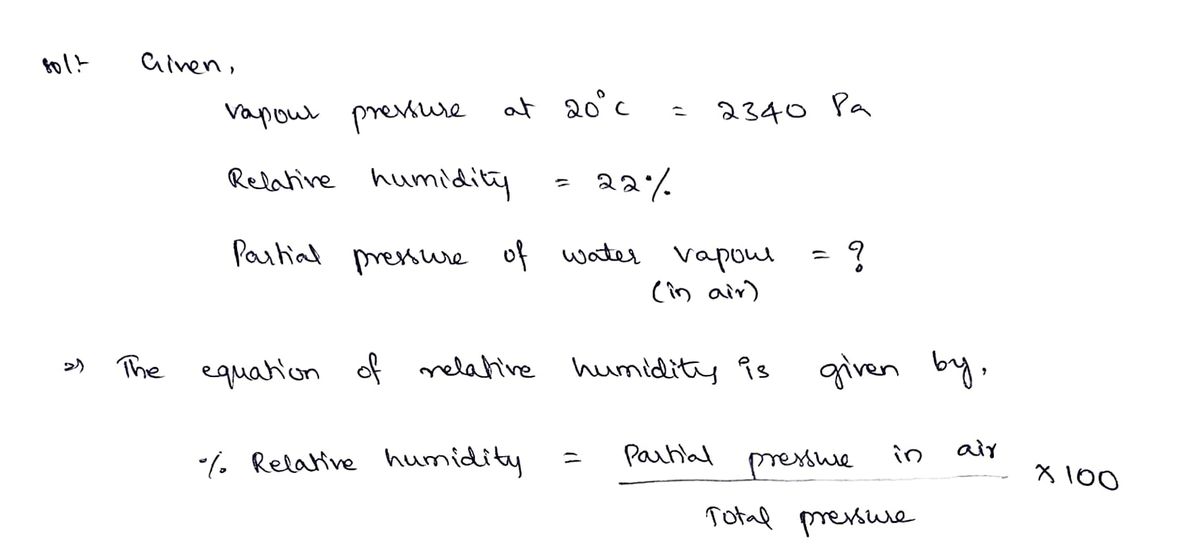 sol:-   Given,
vapour pressure at 20°C = 2340 Pa
Relative humidity = 22%
Partial pressure of water vapour = ?
(in air)
=> The equation of relative humidity is given by,
% Relative humidity = Partial pressure in air × 100
Total pressure